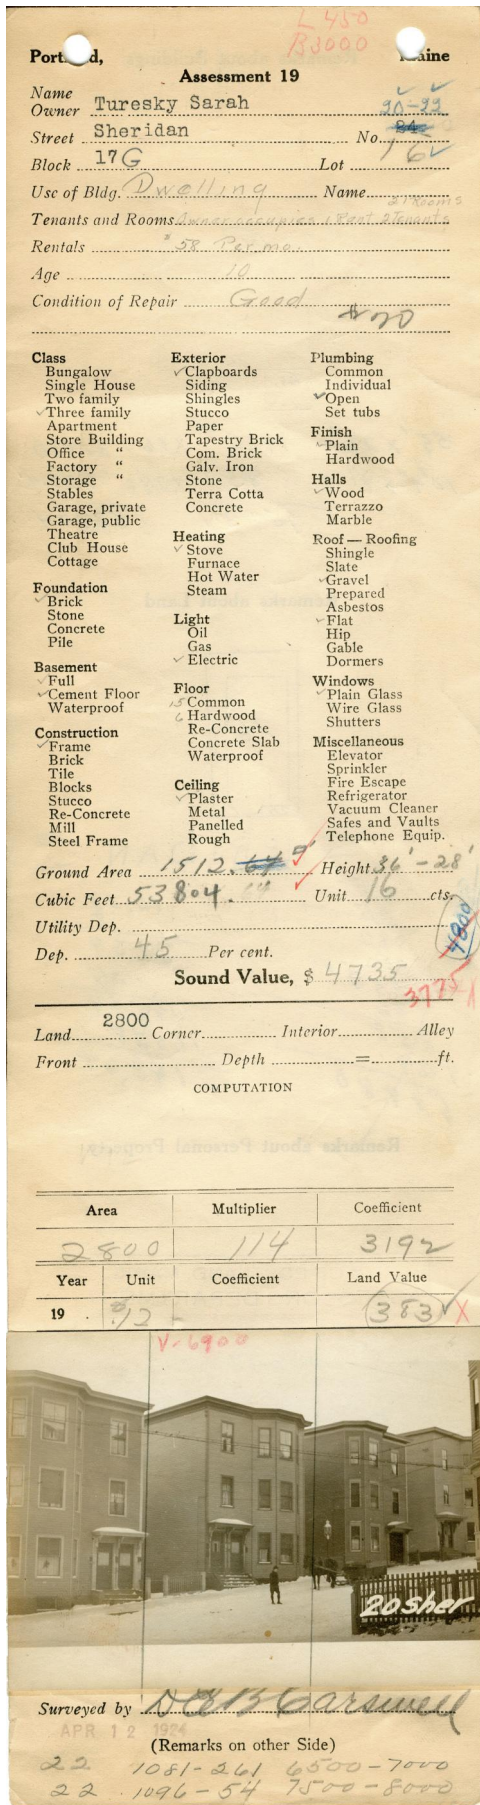 L 450
B 3000
Portland, Maine
Assessment 19
Name
Owner Turesky Sarah 20-22
Street Sheridan No. 24
Block 17G Lot 16
Use of Bldg. Dwelling Name
21 Rooms
Tenants and Rooms Owner occupies 1 Rent 2 Tenants
Rentals $58 Per mo.
Age 10
Condition of Repair Good
$20
Class
Bungalow
Single House
Two family
✓Three family
Apartment
Store Building
Office "
Factory "
Storage "
Stables
Garage, private
Garage, public
Theatre
Club House
Cottage
Foundation
✓Brick
Stone
Concrete
Pile
Basement
✓Full
✓Cement Floor
Waterproof
Construction
✓Frame
Brick
Tile
Blocks
Stucco
Re-Concrete
Mill
Steel Frame
Exterior
✓Clapboards
Siding
Shingles
Stucco
Paper
Tapestry Brick
Com. Brick
Galv. Iron
Stone
Terra Cotta
Concrete
Heating
✓Stove
Furnace
Hot Water
Steam
Light
Oil
Gas
✓Electric
Floor
15 Common
6 Hardwood
Re-Concrete
Concrete Slab
Waterproof
Ceiling
✓Plaster
Metal
Panelled
Rough
Plumbing
Common
Individual
✓Open
Set tubs
Finish
✓Plain
Hardwood
Halls
✓Wood
Terrazzo
Marble
Roof — Roofing
Shingle
Slate
✓Gravel
Prepared
Asbestos
✓Flat
Hip
Gable
Dormers
Windows
✓Plain Glass
Wire Glass
Shutters
Miscellaneous
Elevator
Sprinkler
Fire Escape
Refrigerator
Vacuum Cleaner
Safes and Vaults
Telephone Equip.
Ground Area 1512.64 Height 36'-28'
Cubic Feet 53804. Unit 16 cts.
Utility Dep.
4800
Dep. 45 Per cent.
Sound Value, $ 4735
3775
Land 2800 Corner Interior Alley
Front Depth = ft.
COMPUTATION
Area Multiplier Coefficient
2800 114 3192
Year Unit Coefficient Land Value
19 .12 - 383
V-6900
20 Sher
Surveyed by D E B Carswell
APR 12 1924
(Remarks on other Side)
22 1081-261 6500-7000
22 1096-54 7500-8000